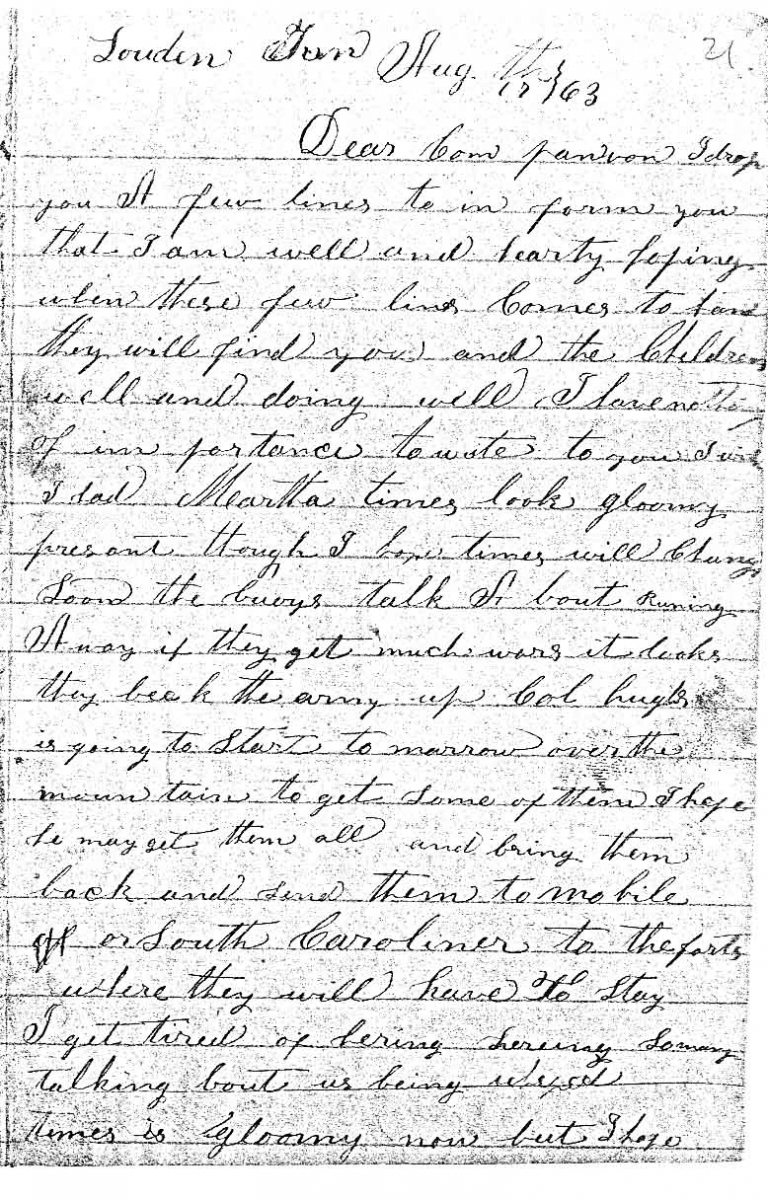 Louden Ten Aug. th 17/63
21.
Dear Com panvon I drop
you A few lines to in form you
that I am well and hearty hoping
when these few lines Comes to hand
they will find you and the Children
well and doing well I have nothing
of im portance to write to you
Meartha times look gloomy
presant though I hope times will Change
Soon the buoys talk A bout Runing
A way if they get much wors it looks
they beak the army up Col hughs
is going to Start to marrow over the
moun tain to get Some of them I hope
he may get them all and bring them
back and send them to mobile
or South Caroliner to the forts
where they will have to Stay
I get tired of hering hereing So many
talking bout us being
times is gloomy now but I hope